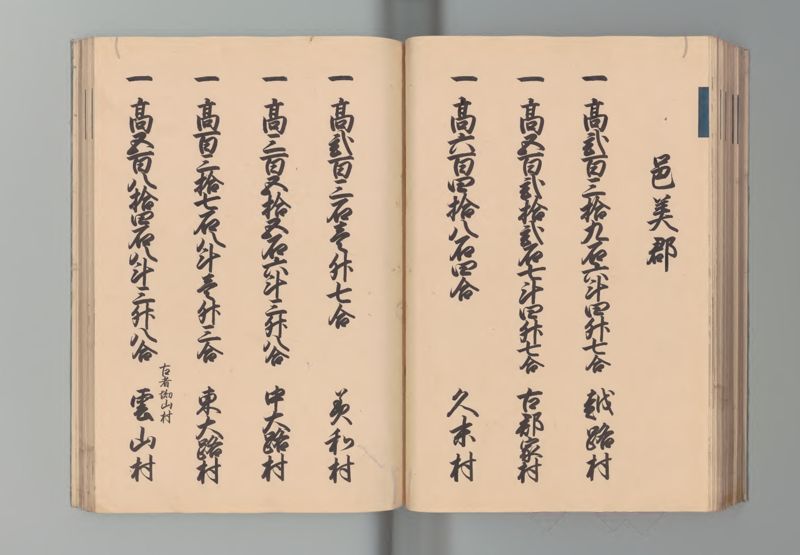 邑美郡
一 高弐百三拾九石六斗四升七合 越路村
一 高五百弐拾弐石七斗四升七合 古郡家村
一 高六百四拾八石四合 久末村
一 高弐百三石壱升七合 美和村
一 高三百五拾五石六斗三升八合 中大路村
一 高百三拾七石八斗壱升三合 東大路村
一 高五百八拾四石八斗三升八合 雲山村
古者 山村